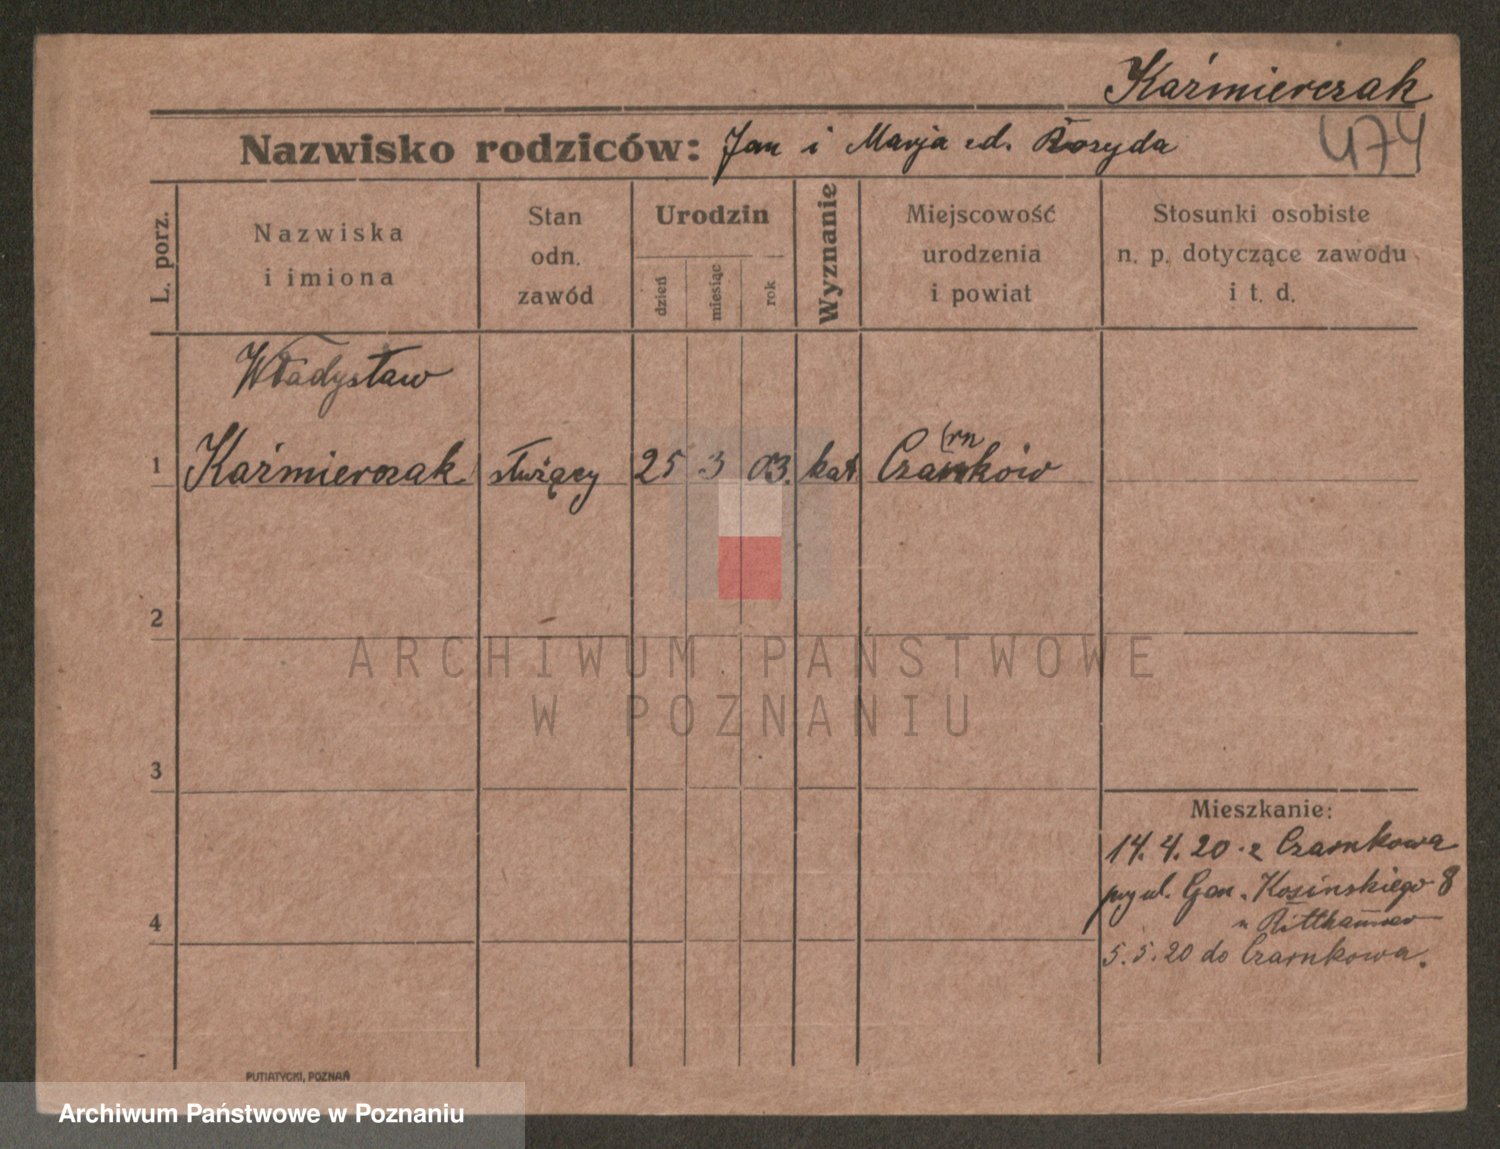 Kaźmierczak
Nazwisko rodziców: Jan i Marja
474
L. porz.
Nazwiska
i imiona
Stan
odn.
zawód
Urodzin
dzień
miesiąc
rok
Wyznanie
Miejscowość
urodzenia
i powiat
Stosunki osobiste
n. p. dotyczące zawodu
i t. d.
Władysław
rn
1 Kaźmierczak służący 25 3 03. kat Czarnków
2
ARCHIWUM PAŃSTWOWE
W POZNANIU
3
Mieszkanie:
14. 4. 20 z Czarnkowa
przy ul. Gen. Kosińskiego 8
4
5. 5. 20 do Czarnkowa.
PUTIATYCKI, POZNAŃ
Archiwum Państwowe w Poznaniu